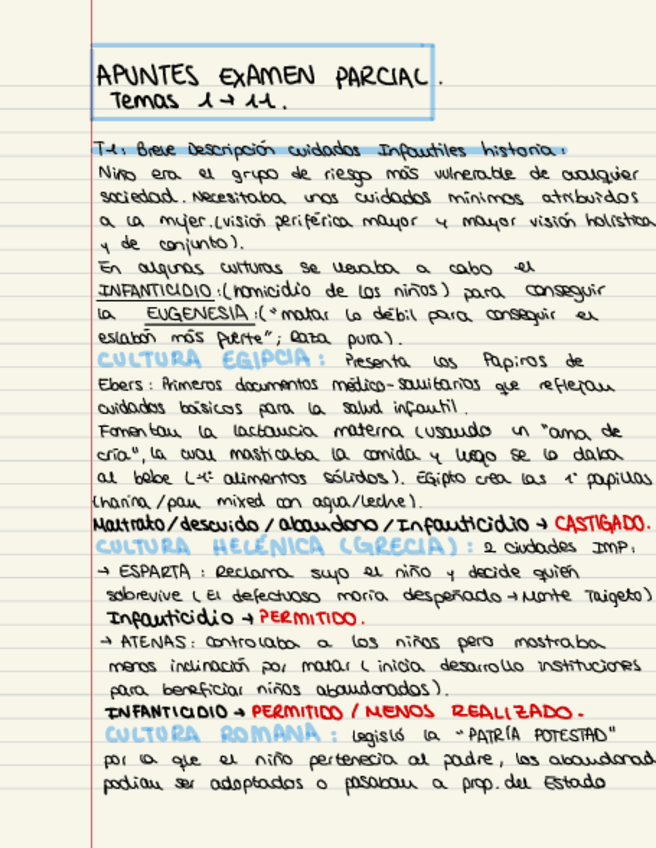 APUNTES EXAMEN PARCIAL.
Temas 1 → 11.
T-1: Breve Descripción cuidados Infantiles historia:
Niño era el grupo de riesgo más vulnerable de cualquier
sociedad. Necesitaba unos cuidados mínimos atribuidos
a la mujer. (visión periférica mayor y mayor visión holística
y de conjunto).
En algunas culturas se llevaba a cabo el
INFANTICIDIO: (homicidio de los niños) para conseguir
la EUGENESIA: ("matar lo débil para conseguir el
eslabón más fuerte"; Raza pura).
CULTURA EGIPCIA: Presenta los Papiros de
Ebers: Primeros documentos médico-sanitarios que reflejan
cuidados básicos para la salud infantil.
Fomentan la lactancia materna (usando un "ama de
cría", la cual masticaba la comida y luego se lo daba
al bebe (1º alimentos sólidos). Egipto crea las 1ª papillas
(harina/pan mixed con agua/leche).
Maltrato/descuido/abandono/Infanticidio → CASTIGADO.
CULTURA HELÉNICA (GRECIA): 2 ciudades IMP:
→ ESPARTA: Reclama suyo el niño y decide quién
sobrevive (El defectuoso moría despeñado → Monte Taigeto)
Infanticidio → PERMITIDO.
→ ATENAS: Controlaba a los niños pero mostraba
menos inclinación por matar (inicia desarrollo instituciones
para beneficiar niños abandonados).
INFANTICIDIO → PERMITIDO / MENOS REALIZADO.
CULTURA ROMANA: Legisló la "PATRÍA POTESTAD"
por la que el niño pertenecía al padre, los abandonad
podían ser adoptados o pasaban a prop. del Estado